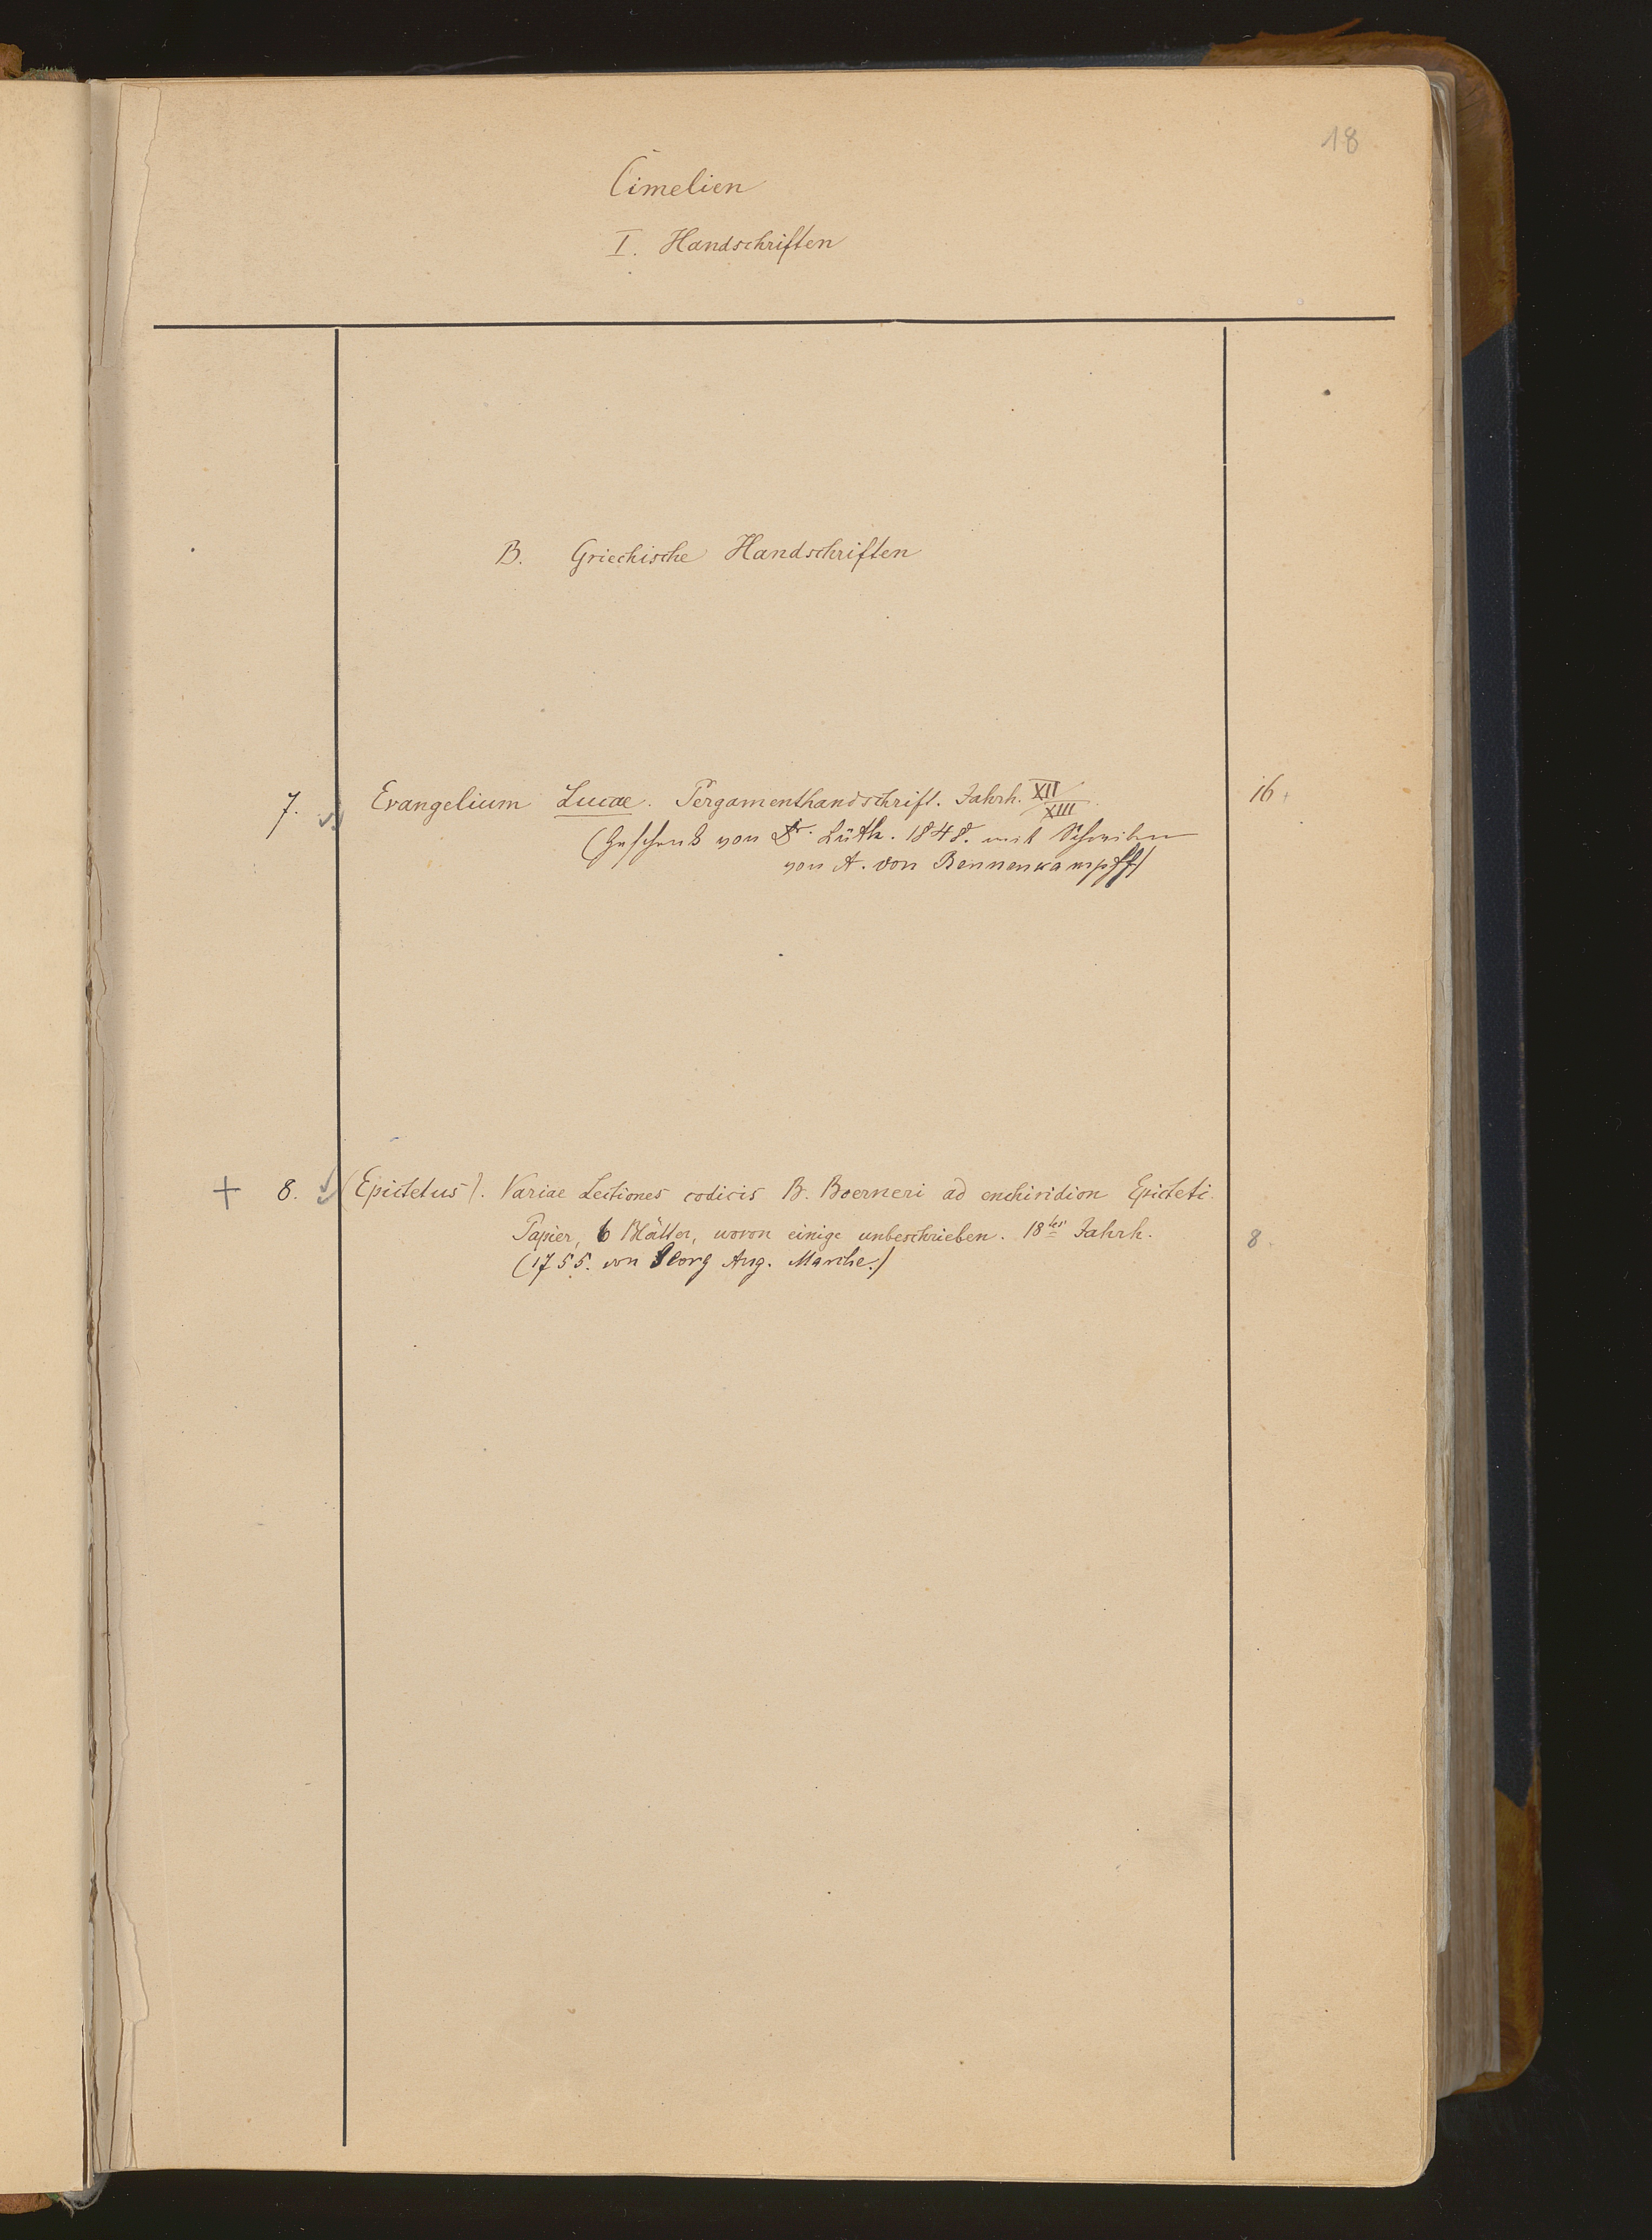 18
Cimelien
I. Handschriften
B. Griechische Handschriften
7. Evangelium Lucae. Pergamenthandschrift. Jahrh. XII/XIII. 16
(Geschenk von Dr. Lüth. 1848. mit Schreiben
von A. von Rennenkampff)
+ 8. (Epictetus). Variae Lectiones codicis B. Boerneri ad enchiridion Epicteti.
Papier, 6 Blätter, wovon einige unbeschrieben. 18tes Jahrh. 8.
(1755. von Georg Aug. Marche.)